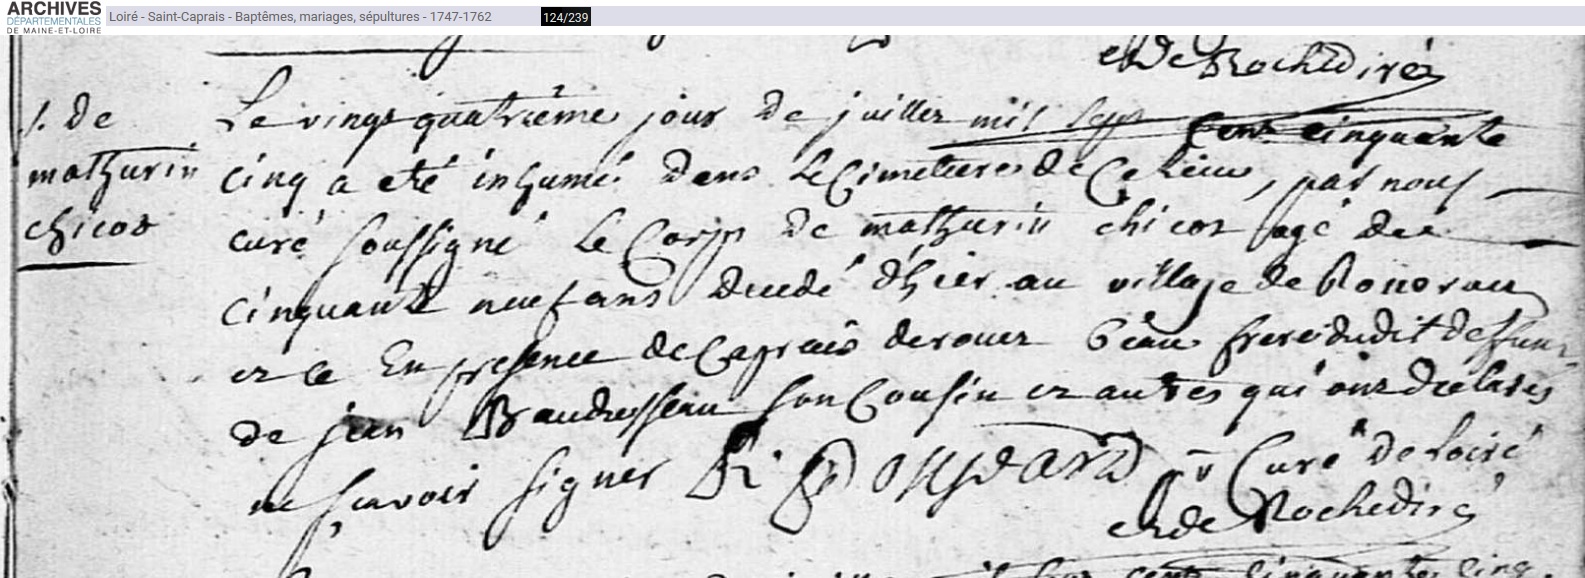 ARCHIVES
DÉPARTEMENTALES
DE MAINE-ET-LOIRE
Loiré - Saint-Caprais - Baptêmes, mariages, sépultures - 1747-1762
124/239
et De Rochediré
S. de
mathurin
chicot
Le vingt quatrième jour de juillet mil sept cent cinquante
cinq a eté inhumé dans le Cimetiere de Ce Lieu, par nous
curé soussigné Le Corps de mathurin chicot agé de
cinquante neuf ans decedé d'hier au village de
et ce En presence de Caprais derouet Beau frere dudit deffunt
de jean son Cousin et autres qui ont declarés
ne sçavoir signer Curé de Loiré
et de Rochediré
cent cinquante cinq